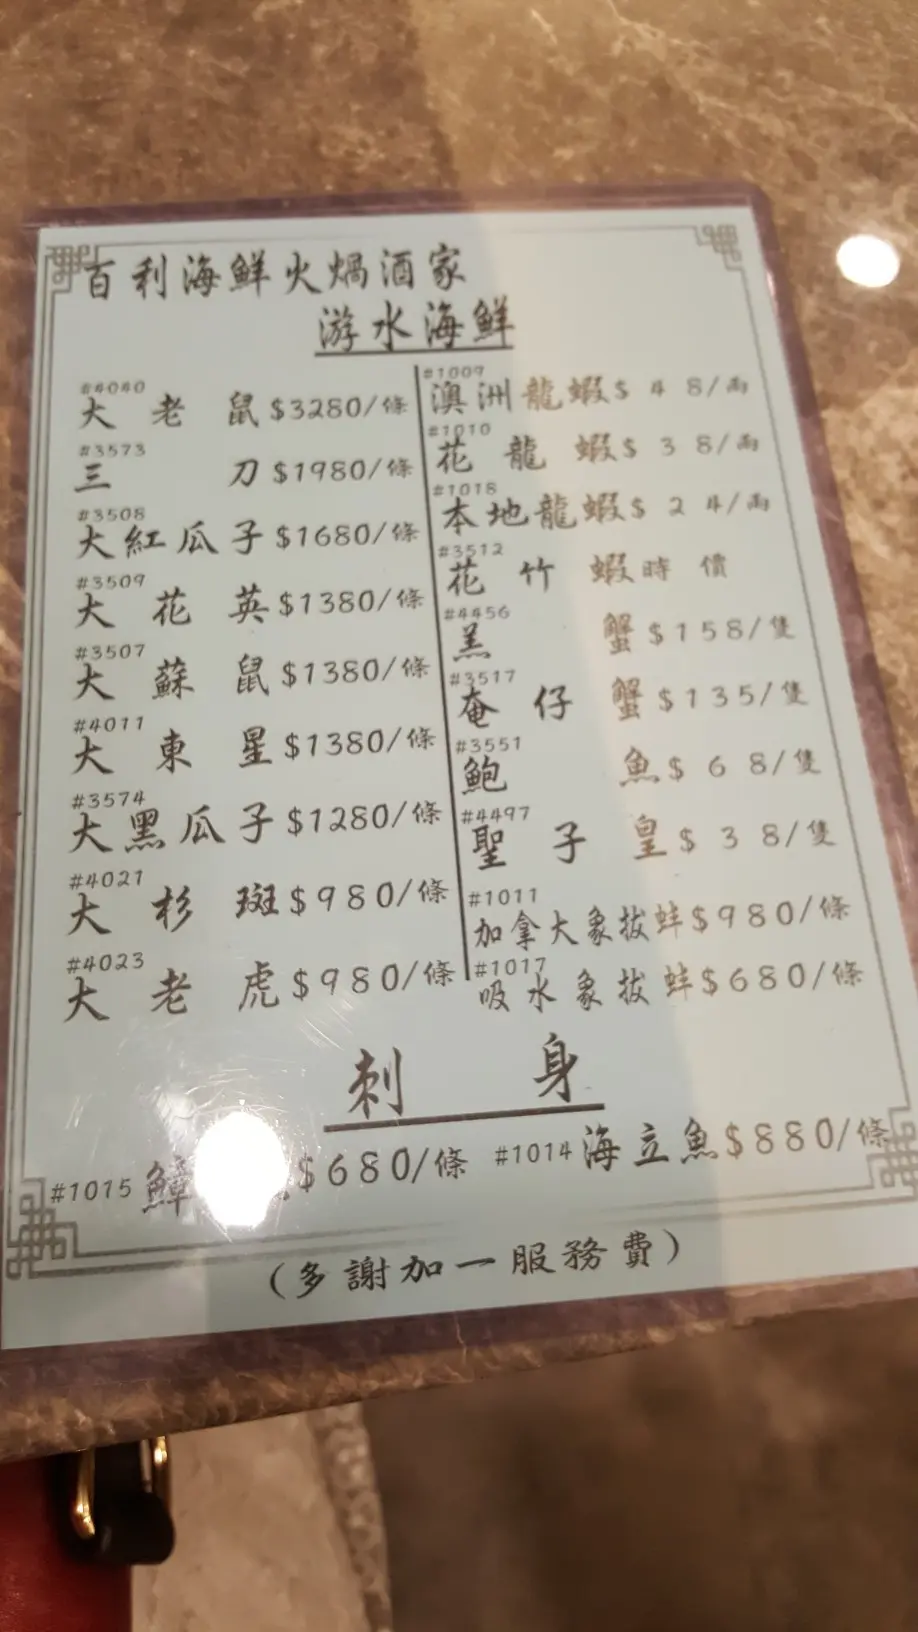 百利海鮮火煱酒家
游水海鮮
#4040
大老鼠$3280/條
#3573
三刀$1980/條
#3508
大紅瓜子$1680/條
#3509
大花英$1380/條
#3507
大蘇鼠$1380/條
#4011
大東星$1380/條
#3574
大黑瓜子$1280/條
#4021
大杉斑$980/條
#4023
大老虎$980/條
#1009
澳洲龍蝦$48/兩
#1010
花龍蝦$38/兩
#1018
本地龍蝦$24/兩
#3512
花竹蝦時價
#4456
羔蟹$158/隻
#3517
奄仔蟹$135/隻
#3551
鮑魚$68/隻
#4497
聖子皇$38/隻
#1011
加拿大象拔蚌$980/條
#1017
吸水象拔蚌$680/條
刺身
#1015 鱆 $680/條
#1014 海立魚$880/條
(多謝加一服務費)